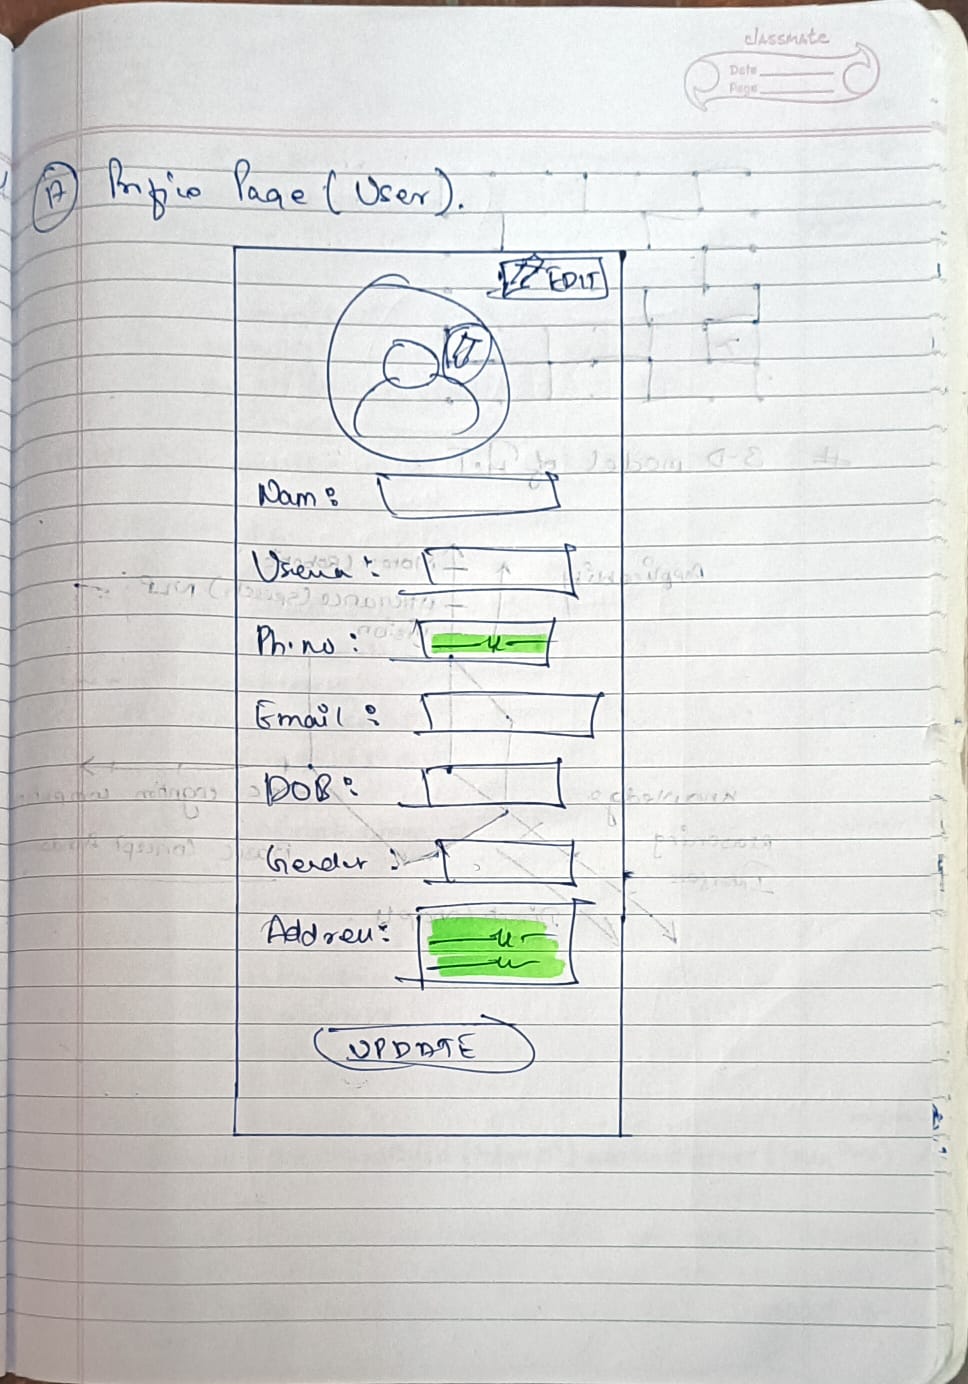 classmate
Date
Page
17 Profile Page (User).
EDIT
Nam:
Userna:
Ph.no:
Email:
DOB:
Gender:
Address:
UPDATE